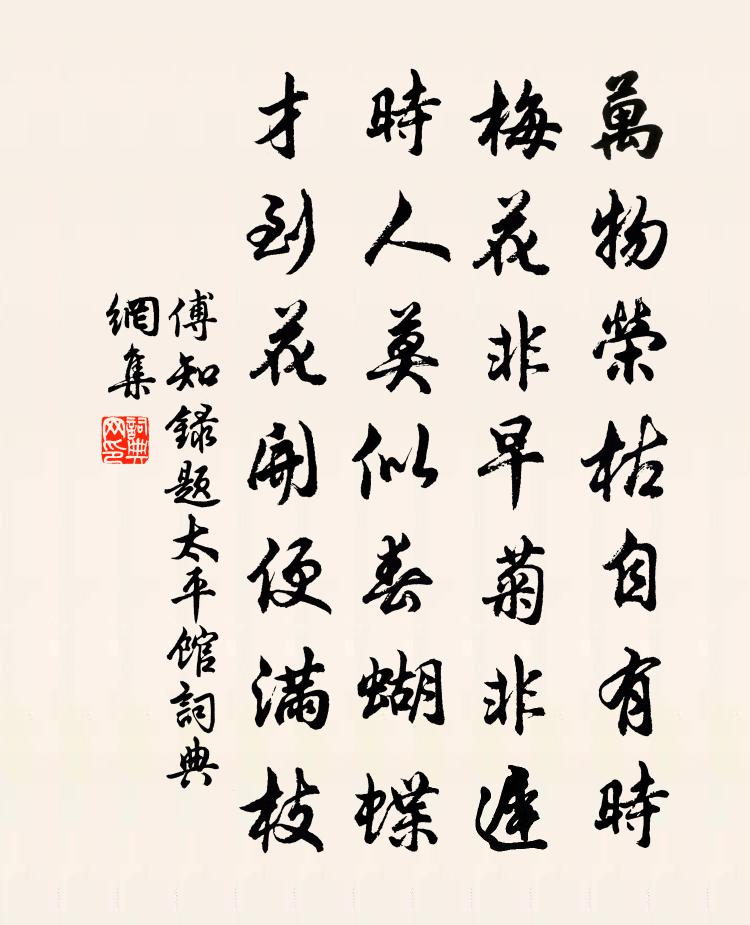 萬物榮枯自有時
梅花非早菊非遲
時人莫似春蝴蝶
才到花開便滿枝
傅知錄題太平館詞典
網集
詞典
网印